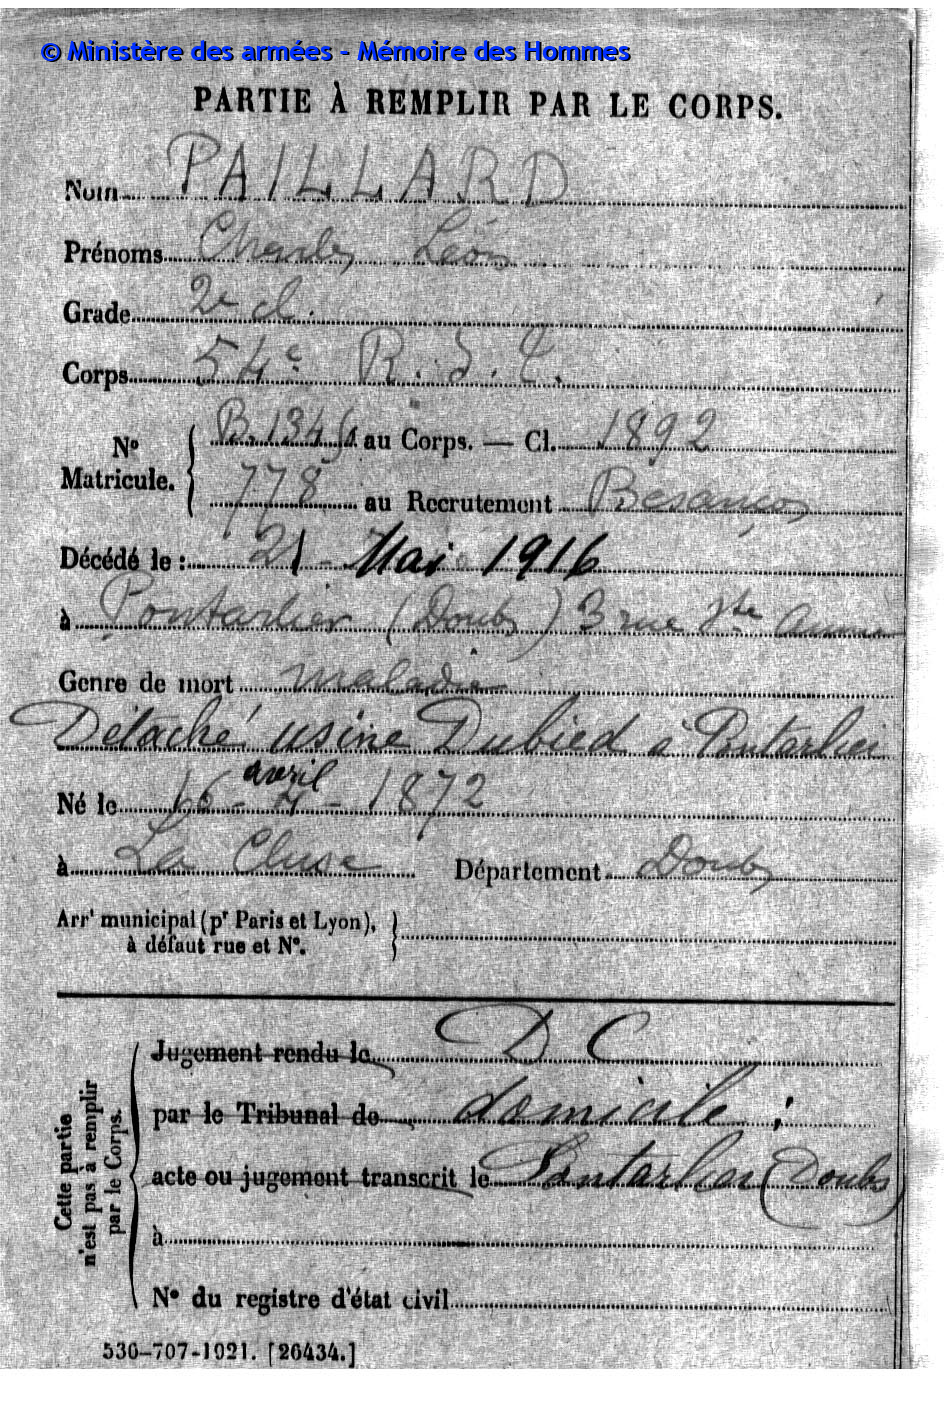 © Ministère des armées - Mémoire des Hommes
PARTIE À REMPLIR PAR LE CORPS.
Nom PAILLARD
Prénoms Charles Léon
Grade 2e cl.
Corps 54e R. I. T.
N° Matricule. B. 1346 au Corps. — Cl. 1892
778 au Recrutement Besançon
Décédé le : 21 - Mai 1916
à Pontarlier (Doubs) 3 rue Ste Anne
Genre de mort maladie
Détaché usine Dubied à Pontarlier
avril
Né le 16 - 4 - 1872
à La Cluse Département Doubs
Arrt municipal (pr Paris et Lyon),
à défaut rue et N°.
Cette partie
n'est pas à remplir
par le Corps.
Jugement rendu le D C
par le Tribunal de domicile :
acte ou jugement transcrit le Pontarlier (Doubs)
à
N° du registre d'état civil
536-707-1921. [26434.]